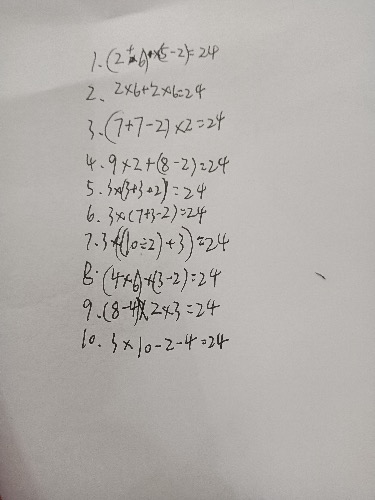 1. (2+6)×(5-2)=24
2. 2×6+2×6=24
3. (7+7-2)×2=24
4. 9×2+(8-2)=24
5. 3×(3+3+2)=24
6. 3×(7+3-2)=24
7. 3×((10÷2)+3)=24
8. (4×6)×(3-2)=24
9. (8-4)×2×3=24
10. 3×10-2-4=24